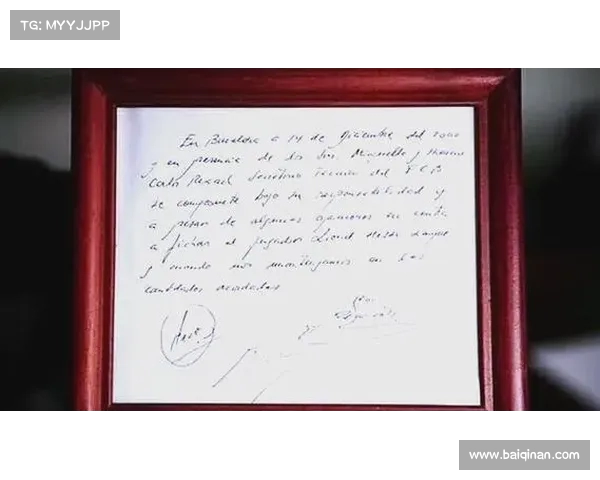 TG: MYYJJPP
En Barcelona a 14 de Diciembre del 2000
y en presencia de los Srs. Minguella y
Carlos Rexach Secretario Técnico del F.C.B
se compromete bajo su responsabilidad y
a pesar de algunas opiniones en contra
a fichar al jugador Lionel Messi
y cuando nos mantengamos en las
cantidades acordadas
www.baiqinan.com